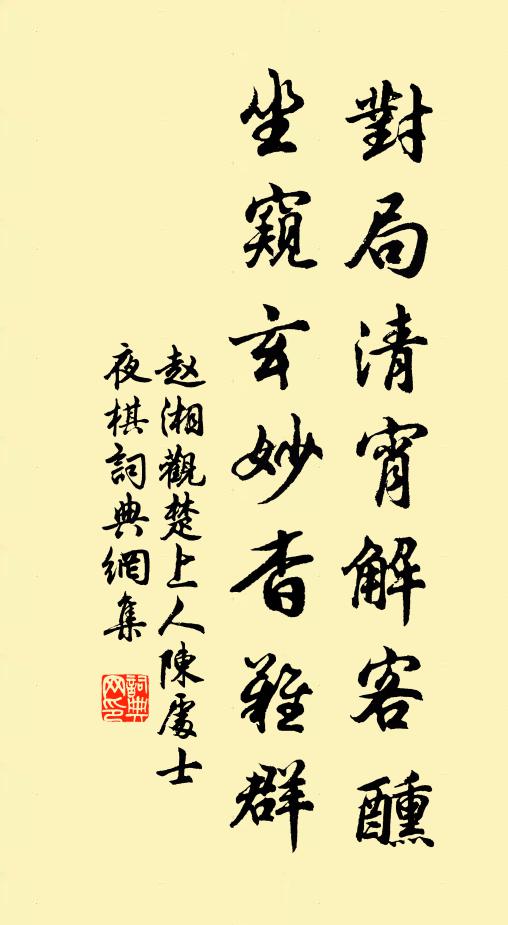 對局清宵解客醺
坐窺玄妙杳難群
赵湘觀楚上人陳處士
夜棋詞典網集
詞典
网印